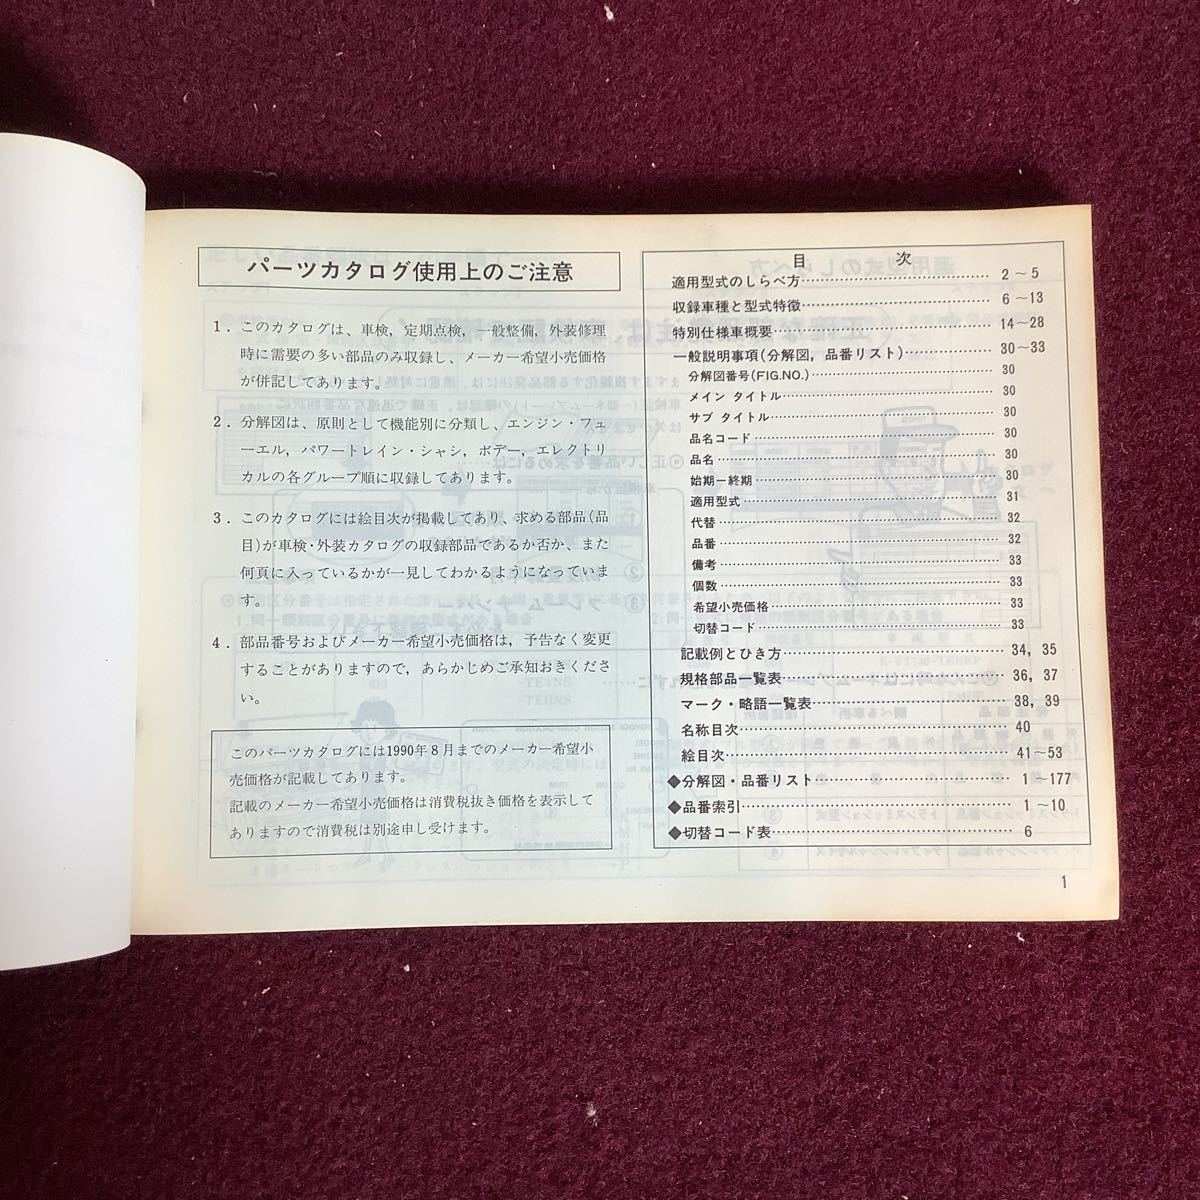 パーツカタログ使用上のご注意
1．このカタログは、車検，定期点検，一般整備，外装修理
時に需要の多い部品のみ収録し、メーカー希望小売価格
が併記してあります。
2．分解図は、原則として機能別に分類し、エンジン・フュ
ーエル，パワートレイン・シャシ，ボデー，エレクトリ
カルの各グループ順に収録してあります。
3．このカタログには絵目次が掲載してあり、求める部品(品
目)が車検・外装カタログの収録部品であるか否か、また
何頁に入っているかが一見してわかるようになっていま
す。
4．部品番号およびメーカー希望小売価格は，予告なく変更
することがありますので，あらかじめご承知おきくださ
い。
このパーツカタログには1990年8月までのメーカー希望小
売価格が記載してあります。
記載のメーカー希望小売価格は消費税抜き価格を表示して
ありますので消費税は別途申し受けます。
目　次
適用型式のしらべ方……………………2～5
収録車種と型式特徴……………………6～13
特別仕様車概要……………………14～28
一般説明事項(分解図，品番リスト)……………………30～33
分解図番号(FIG.NO.)……………………30
メイン タイトル……………………30
サブ タイトル……………………30
品名コード……………………30
品名……………………30
始期ー終期……………………30
適用型式……………………31
代替……………………32
品番……………………32
備考……………………33
個数……………………33
希望小売価格……………………33
切替コード……………………33
記載例とひき方……………………34，35
規格部品一覧表……………………36，37
マーク・略語一覧表……………………38，39
名称目次……………………40
絵目次……………………41～53
◆分解図・品番リスト……………………1～177
◆品番索引……………………1～10
◆切替コード表……………………6
1